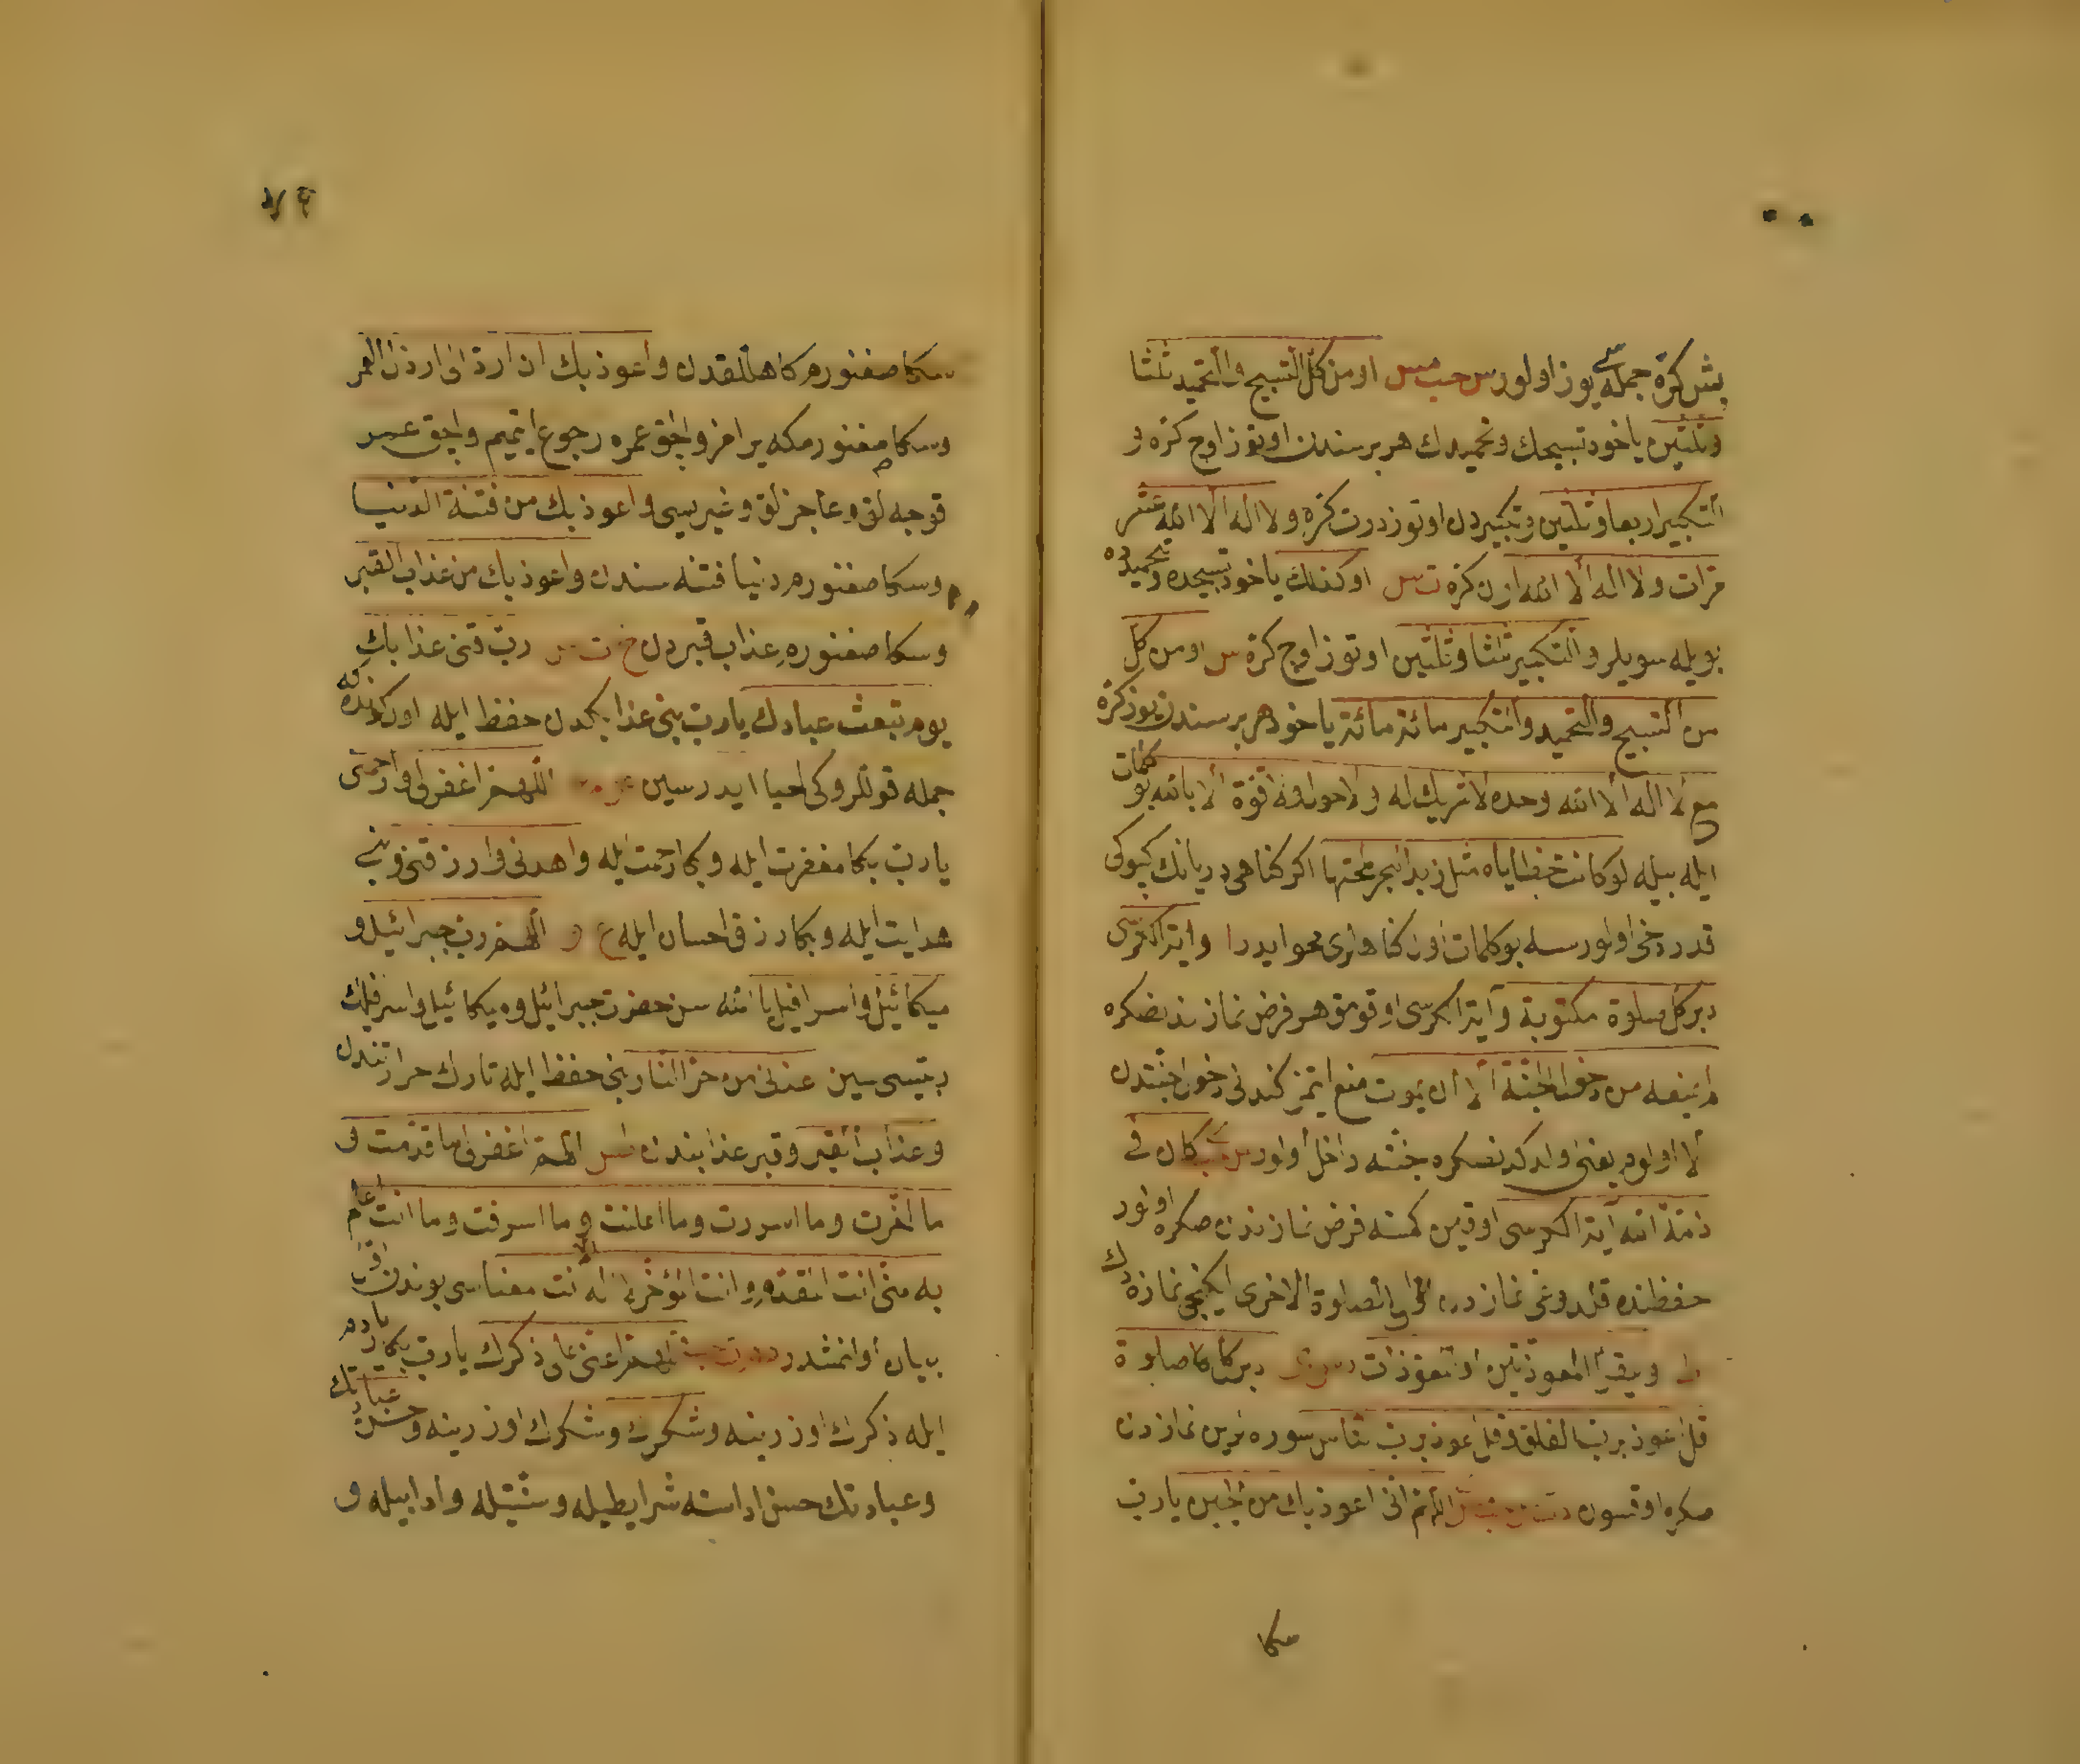 بش كرّه جمله سى يوز اولور س حب مس او من كل التسبيح والتحميد ثلثا
وثلثين ياخود تسبيحك وتحميدك هر برسندن اوتوز اوچ كرّه و
التكبير اربعا وثلثين وتكبيردن اوتوز درت كرّه ولا اله الا الله عشر
مرات ولا اله الا الله اون كرّه ت س او كذلك ياخود تسبيحده وتحميده
بويله سويلر والتكبير ثلثا وثلثين اوتوز اوچ كرّه س او من كل
من التسبيح والتحميد والتكبير مائة مائة ياخود هر برسندن يوز كرّه
مع لا اله الا الله وحده لا شريك له ولا حول ولا قوة الا بالله بو كلمات
ايله بيله لو كانت خطاياه مثل زبد البحر لمحتها اكر كناهى دريانك كپوكى
قدر دخى اولورسه بو كلمات اول كناهلرى محو ايدر ا وآية الكرسى
دبر كل صلوة مكتوبة وآية الكرسى اوقومق هر فرض نمازندنصكره
لم يمنعه من دخول الجنة الا ان يموت منع ايتمز كندنى دخول جنتدن
الا اولوم يعنى اولدكدنصكره جنته داخل اولور س حب كان فى
ذمة الله آية الكرسى اوقين كمسه فرض نمازندن صكره اولور
حفظنده قلدوغى نمازدن الى الصلوة الاخرى ايكنجى نمازه دك
ط ويقرأ المعوذتين او المعوذات دبر كل صلوة
قل اعوذ برب الفلق وقل اعوذ برب الناس سوره لرين نمازدن
صكره اوقسون اللهم انى اعوذ بك من الجبن يا رب
سكا
سكا صغنورم كاهللقدن واعوذ بك ان ارد الى ارذل العمر
وسكا صغنورم كه بر امز والچق عمره رجوع ايتميم والچق عمر
قوجه لق وعاجزلق وغيريسى واعوذ بك من فتنة الدنيا
وسكا صغنورم دنيا فتنه سندن واعوذ بك من عذاب القبر
وسكا صغنورم عذاب قبردن خ ت س رب قنى عذابك
يوم تبعث عبادك يا رب بنى عذابكدن حفظ ايله اول كونده كه
جمله قوللروكى احيا ايدرسين اللهم اغفر لى وارحمنى
يا رب بكا مغفرت ايله وبكا رحمت ايله واهدنى وارزقنى وبنى
هدايت ايله وبكا رزق احسان ايله ع و اللهم رب جبرائيل و
ميكائيل واسرافيل يا الله سن حضرت جبرائيل وميكائيل واسرافيلك
ربيسى سين اعذنى من حر النار بنى حفظ ايله نارك حرارتندن
وعذاب القبر وقبر عذابندن طس اللهم اغفر لى ما قدمت و
ما اخرت وما اسررت وما اعلنت وما اسرفت وما انت اعلم
به منى انت المقدم وانت المؤخر لا اله الا انت معناسى بوندن اول
بيان اولنمشدر اللهم اعنى على ذكرك يا رب بكا ياردم
ايله ذكرك اوزرينه وشكرك وشكرك اوزرينه وحسن عبادتك
وعبادتك حسن اداسنه شرايطيله وسنتيله وادابيله و